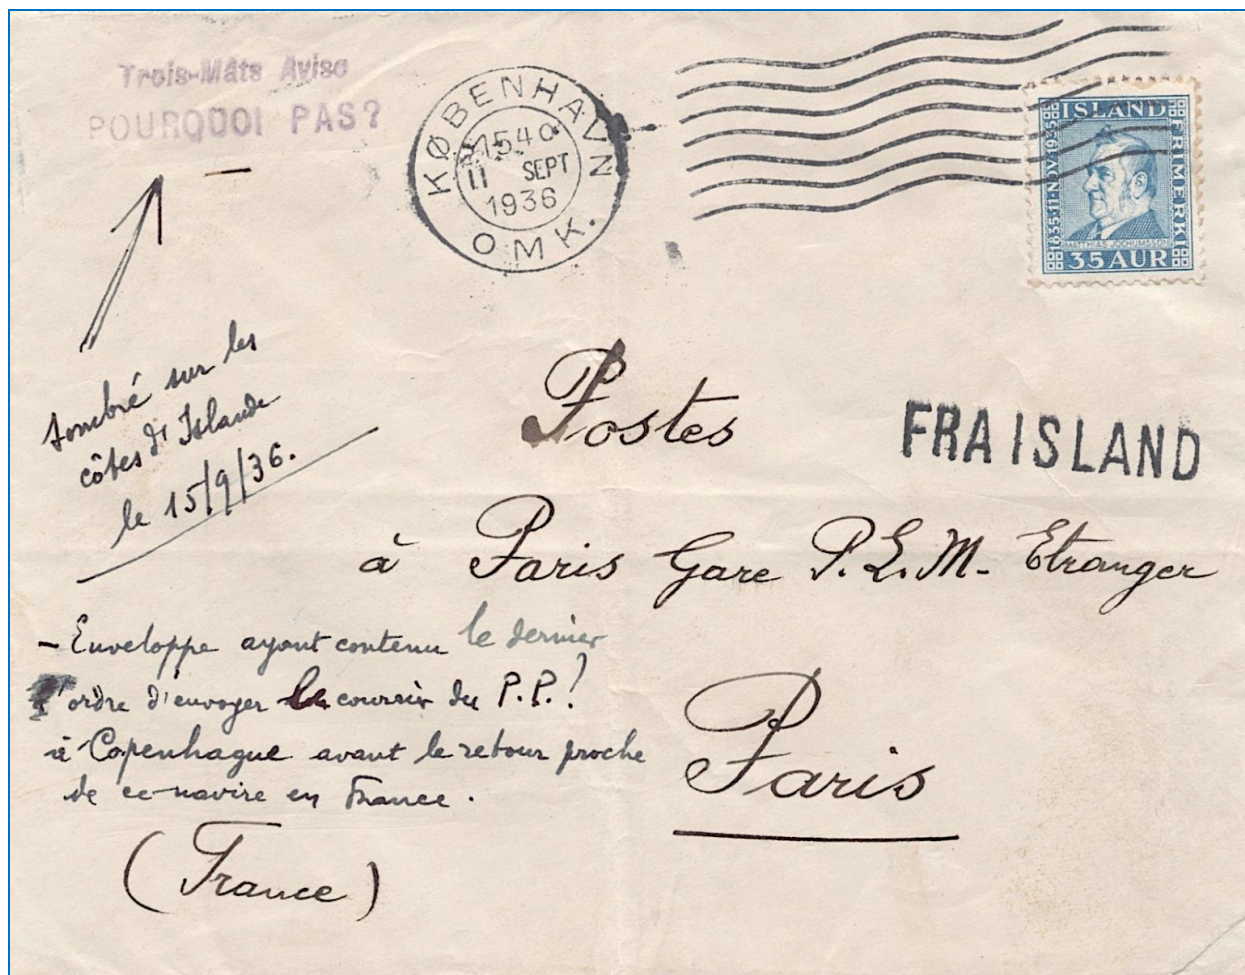 Trois-Mâts Aviso
POURQUOI PAS?
KØBENHAVN
1540
11 SEPT
1936
OMK.
ISLAND
FRIMERKI
1835·11·NOV·1935
MATTHIAS JOCHUMSSON
35 AUR
sombré sur les
côtes d'Islande
le 15/9/36.
Postes
FRA ISLAND
à Paris Gare P.L.M. Etranger
- Enveloppe ayant contenu le dernier
ordre d'envoyer le courrier du P.P.?
à Copenhague avant le retour proche
de ce navire en France.
Paris
(France)